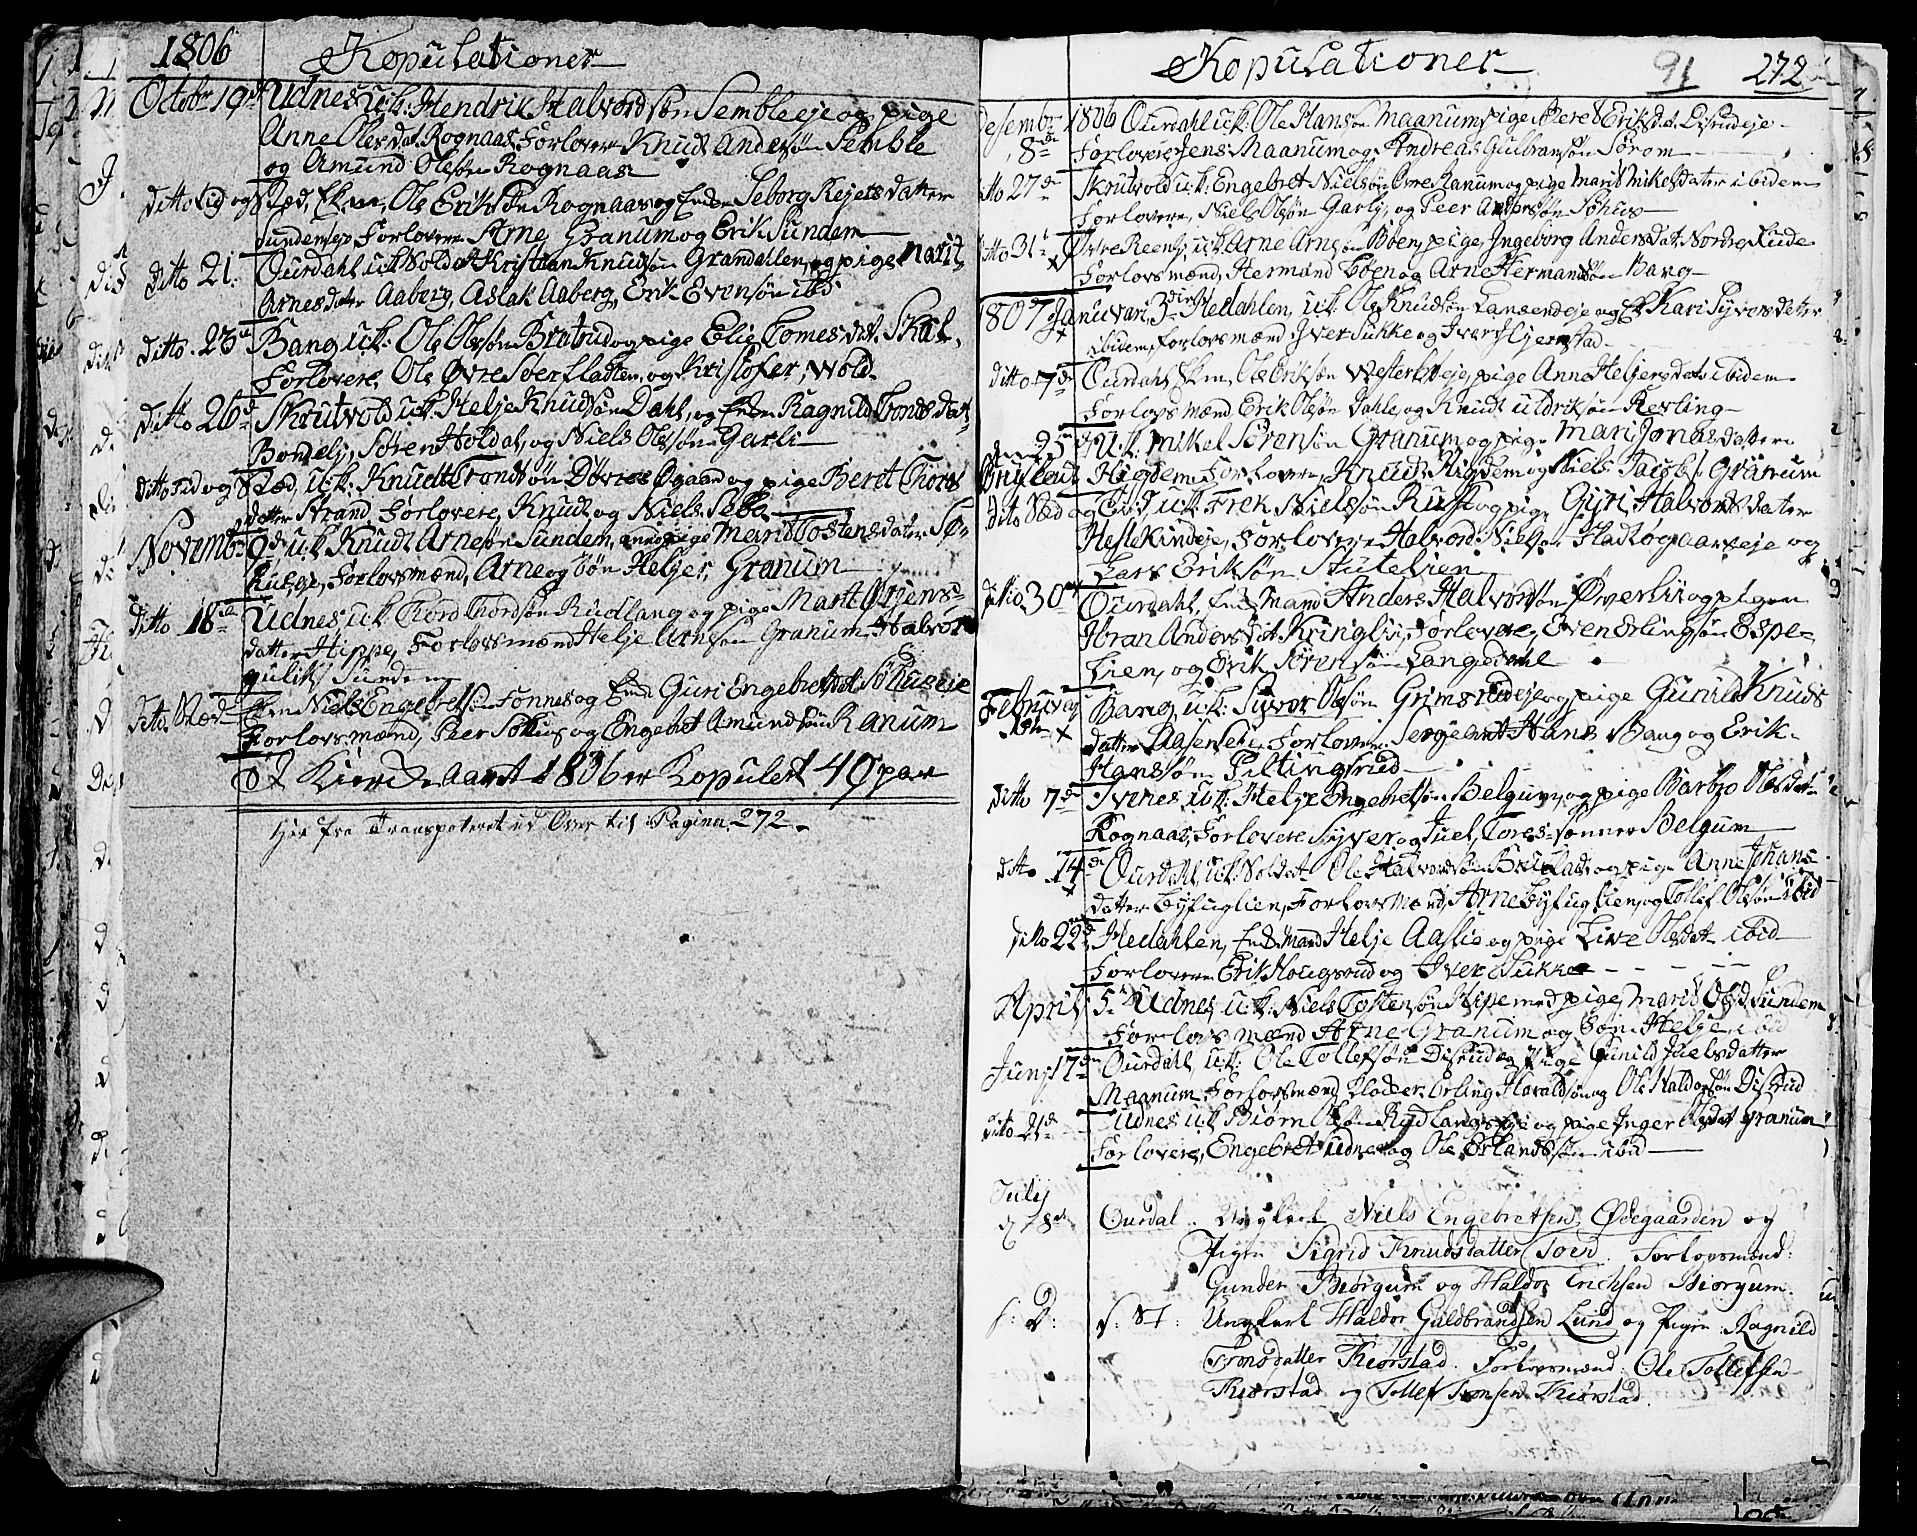 1806 Kopulationer
Octobr 19de Udnes u:k: Hendrik Halvordsøn Sembleeje og pige
Anne Olesdat. Rognaas, Forlovere Knud Andersøn Semble
og Amund Olsøn Rognaas
ditto tid og Stæd, Ekm, Ole Eriksøn Rognaas og Enke Seborg Rejersdatter
Sundemsejе Forlovere Arne Granum og Erik Sundem
ditto 21: Ourdahl u:k Soldat Kristian Knudsøn Grandahlen, og pige Marit
Arnesdater Aaberg, Aslak Aaberg, Erik Evensøn ibid
ditto. 23de Bang u:k: Ole Olsøn Bratrud og pige Elie Tomesdat. Skar,
Forlovere, Ole Øvre Søerfladten, og Kristofer, Wold
ditto 26d Skrutvold u:k: Helje Knudsøn Dahl, og Enke Ragnild Tronds dat
Bondelj, Søren Holdal, og Niels Olssøn Garli
ditto tid og Stæd, u:k: Knudt Trondsøn Øvre Øgaard og pige Berit Thords
datter Strand Forlovere, Knud og Niels Sebo
Novembr 9de u:k Knudt Arnesøn Sundem, og pige Marit Tostensdater
Forlovsmænd, Arne og Søn Heljer, Granum
ditto 18de Udnes u:k Thord Thordsøn Rudlang og pige Marit Ørjens
datter Hippe, Forlovsmænd Helje Arnsøn Granum Halvor
gulik Sundem
ditto. Stæd Ekm Niels Engebretsøn Fønnes og Enke Guri Engebretsdat Søhuseje
Forlovsmænd, Peer Søhus og Engebret Amundsøn Ranum
I Kierke Aaret 1806 er Kopulert 49 par
Her fra Transporteret ud Over til Pagina 272.
Kopulationer 91 272
Desembr 1806 Ourdahl u:k: Ole Hansøn Maanum, pige Bereth Eriksdat. Disrudeje
8de Forlovere, Jens Maanum og Andreas Gulbransøn Sørom
ditto 27de Skrutvold u:k: Engebret Nielsøn Øvre Ranum og pige Marit Mikelsdater ibidem
Forlovere, Niels Olsøn Garlj, og Peer Andersøn Søhus
ditto 31t Øvre Reen u:k: Arne Arnsøn Bøen, pige, Ingeborg Andersdat. Nordre Ruде
Forlovsmænd, Hermand Bøen og Arne Hermandsøn Bang
1807 Januvari, 3die Hedahlen, u:k: Ole Knudsøn Lansendeje og E: Kari Syversdatter
ibidem, Forlovsmænd Jver Sukke og Iver Hjemstad
ditto 7de Ourdahl, Ekm, Ole Eriksøn Westerbøeje, pige Anne Heljersdat. ibidem
Forlovsmænd Erik Olsøn Dahle og Knudt Uldriksøn Revling
den 25de U:k: Mikel Sørensøn Granum og pige Mari Jonasdatter
Høgdem, Forlovere, Knud Høgdem og Niels Jacobs. Granum
dito Stæd og Tid u:k: Frek Nielsøn Ruste og pige Gjri Halvordsdater
Heslekindeje, Forlovere Halvord Nielsøn Fladtøgaardseje og
Lars Eriksøn Stutelien
ditto, 30te Ourdahl, Enkemand Anders Halvordsøn Øverlii og pigen
Jøran Andersdat Kringlii, Forlovere, Even Erlingsøn Espe-
lien, og Erik Sørensøn Langedahl
Februvarj Bang, u:k: Syver Olsøn Grimsrudeje og pige Gunild Knuds
1ste datter Aaserud, Forlovere Sergeant Hans Bang og Erik
Hanssøn Piltingsrud
ditto 7de Svenes, u:k: Helje Engebretsøn Belgum, og pige Barbro Olesdat
Rognaas, Forlovere Syver og Juel, Tores-sønner Belgum
ditto 14de Ourdahl, u:k: Soldat Ole Halvordsøn og pige Anne Johans
datter Byfuglien, Forlovsmænd, Arne Byfuglien, og Tollef Olsøn ibid
ditto 22de Hedahlen, Enkemand Helje Aaslie og pige Live Olsdat ibid
Forlovere Erik Hougsrud og Iver Sukke
April 5te Udnes u:k: Niels Tostensøn Hipe med pige, Marit Olsd. Sundem
Forlovsmænd Arne Granum og Søn Helje, ibid
Junj 17de Ourdahl, u:k: Ole Tollefsøn Disrud og Pige Gunild Juelsdatter
Maanum, Forlovsmænd Erling Haraldsøn og Ole Haldorsøn Disrud
ditto 21de Udnes u:k Biørn Olsøn Rudlangseje og pige Inger Olsdat Granum
Forlovere, Engebret Udnes og Ole Erlandsøn ibid
Julij
d 8de Ourdal. Ungkarl Niels Engebretsen Ødegaarden og
Pigen Sigrid Knudsdatter Toen. Forlovsmænd:
Gunder Biørgum og Haldor Erichsen Biørgum.
s: D: s: St: Ungkarl Haldor Guldbrandsen Lund og Pigen Ragnild
Tronsdatter Thiørstad. Forlovsmænd: Ole Tollefsen
Thiørstad og Tollef Tronsen Thiørstad.